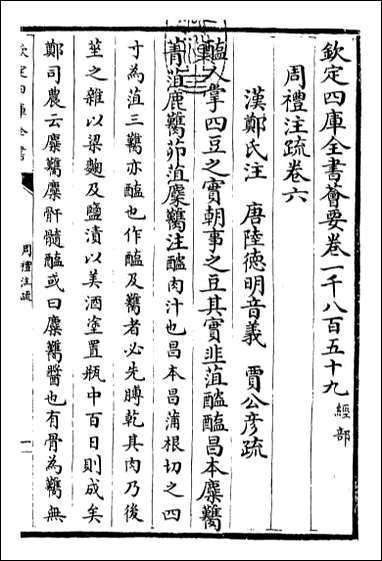 欽定四庫全書薈要卷一千八百五十九 經部
周禮注疏卷六
漢鄭氏注 唐陸德明音義 賈公彥疏
醢人掌四豆之實朝事之豆其實韭菹醓醢昌本麋臡
菁菹鹿臡茆菹麇臡注醓肉汁也昌本昌蒲根切之四
寸為菹三臡亦醢也作醢及臡者必先膊乾其肉乃後
莝之雜以梁麴及鹽漬以美酒塗置瓶中百日則成矣
鄭司農云麋臡麋骭髓醢或曰麋臡醬也有骨為臡無
欽定四庫全書
周禮注疏
一